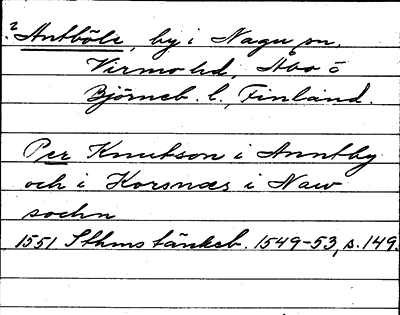 ? Antböle, by i Nagu sn.
Virmo hd, Åbo o
Björneb. l., Finland.
Per Knutson i Anntby
och i Korsnæs i Naw
sochn
1551 Sthms tänkeb. 1549-53, s. 149.